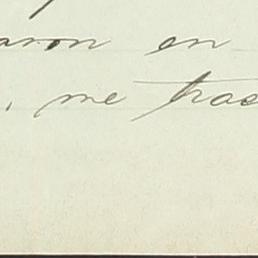 aron en
, me tras